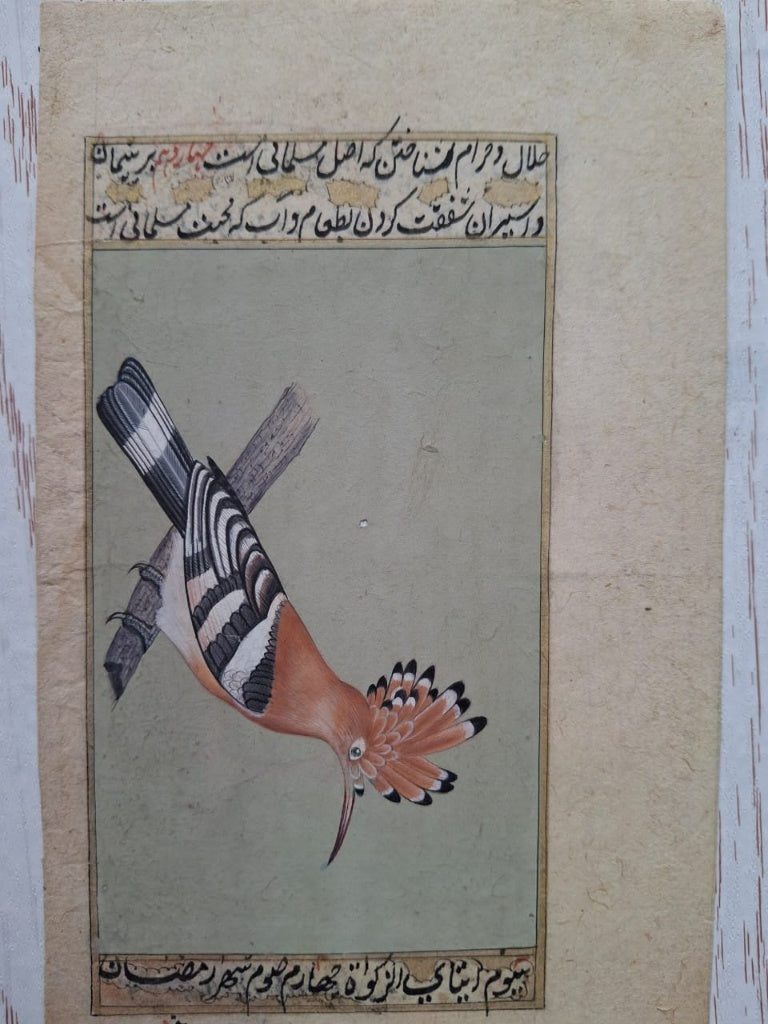 حلال و حرام شناختن که اصل مسلمانی است چهاردهم بر یتیمان
و اسیران شفقت کردن بطعام و آب که محبت مسلمانی است
سیوم ایتای الزکواة چهارم صوم شهر رمضان